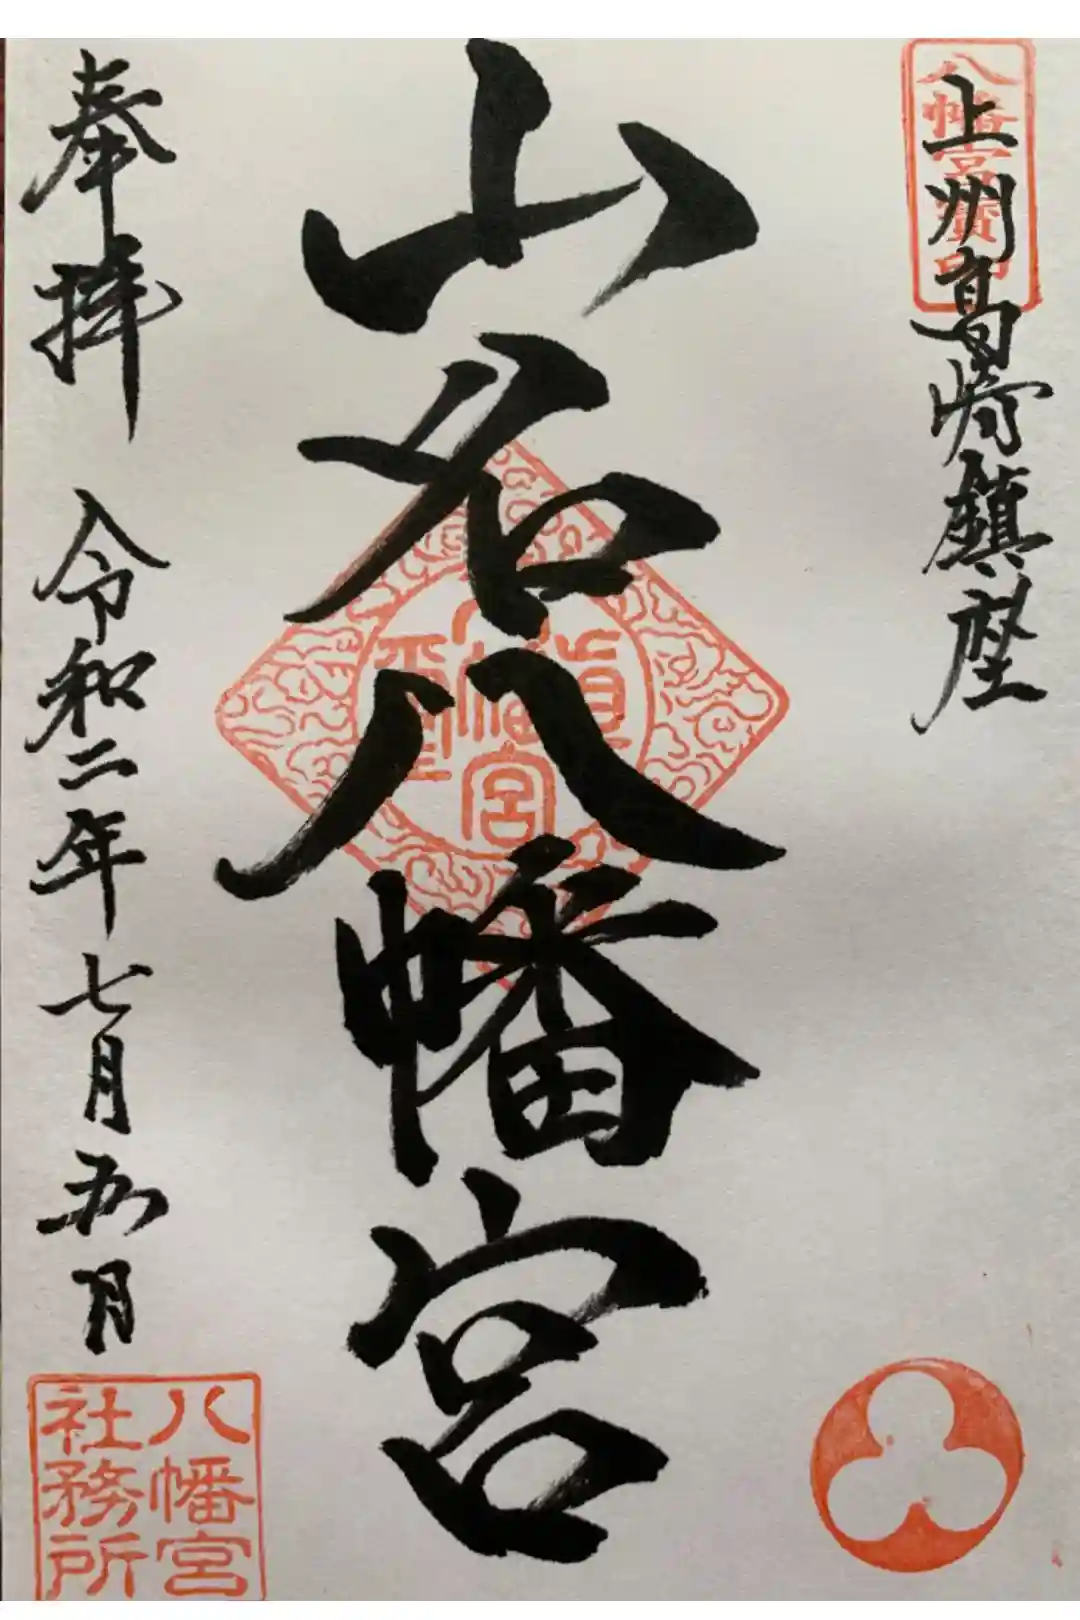 上州高崎鎮座
八幡宮寶印
山名八幡宮
奉拝 令和二年七月五日
八幡宮
社務所